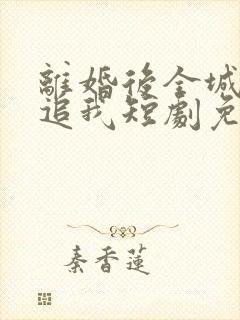 離婚後全城
追我短劇免
秦香蓮